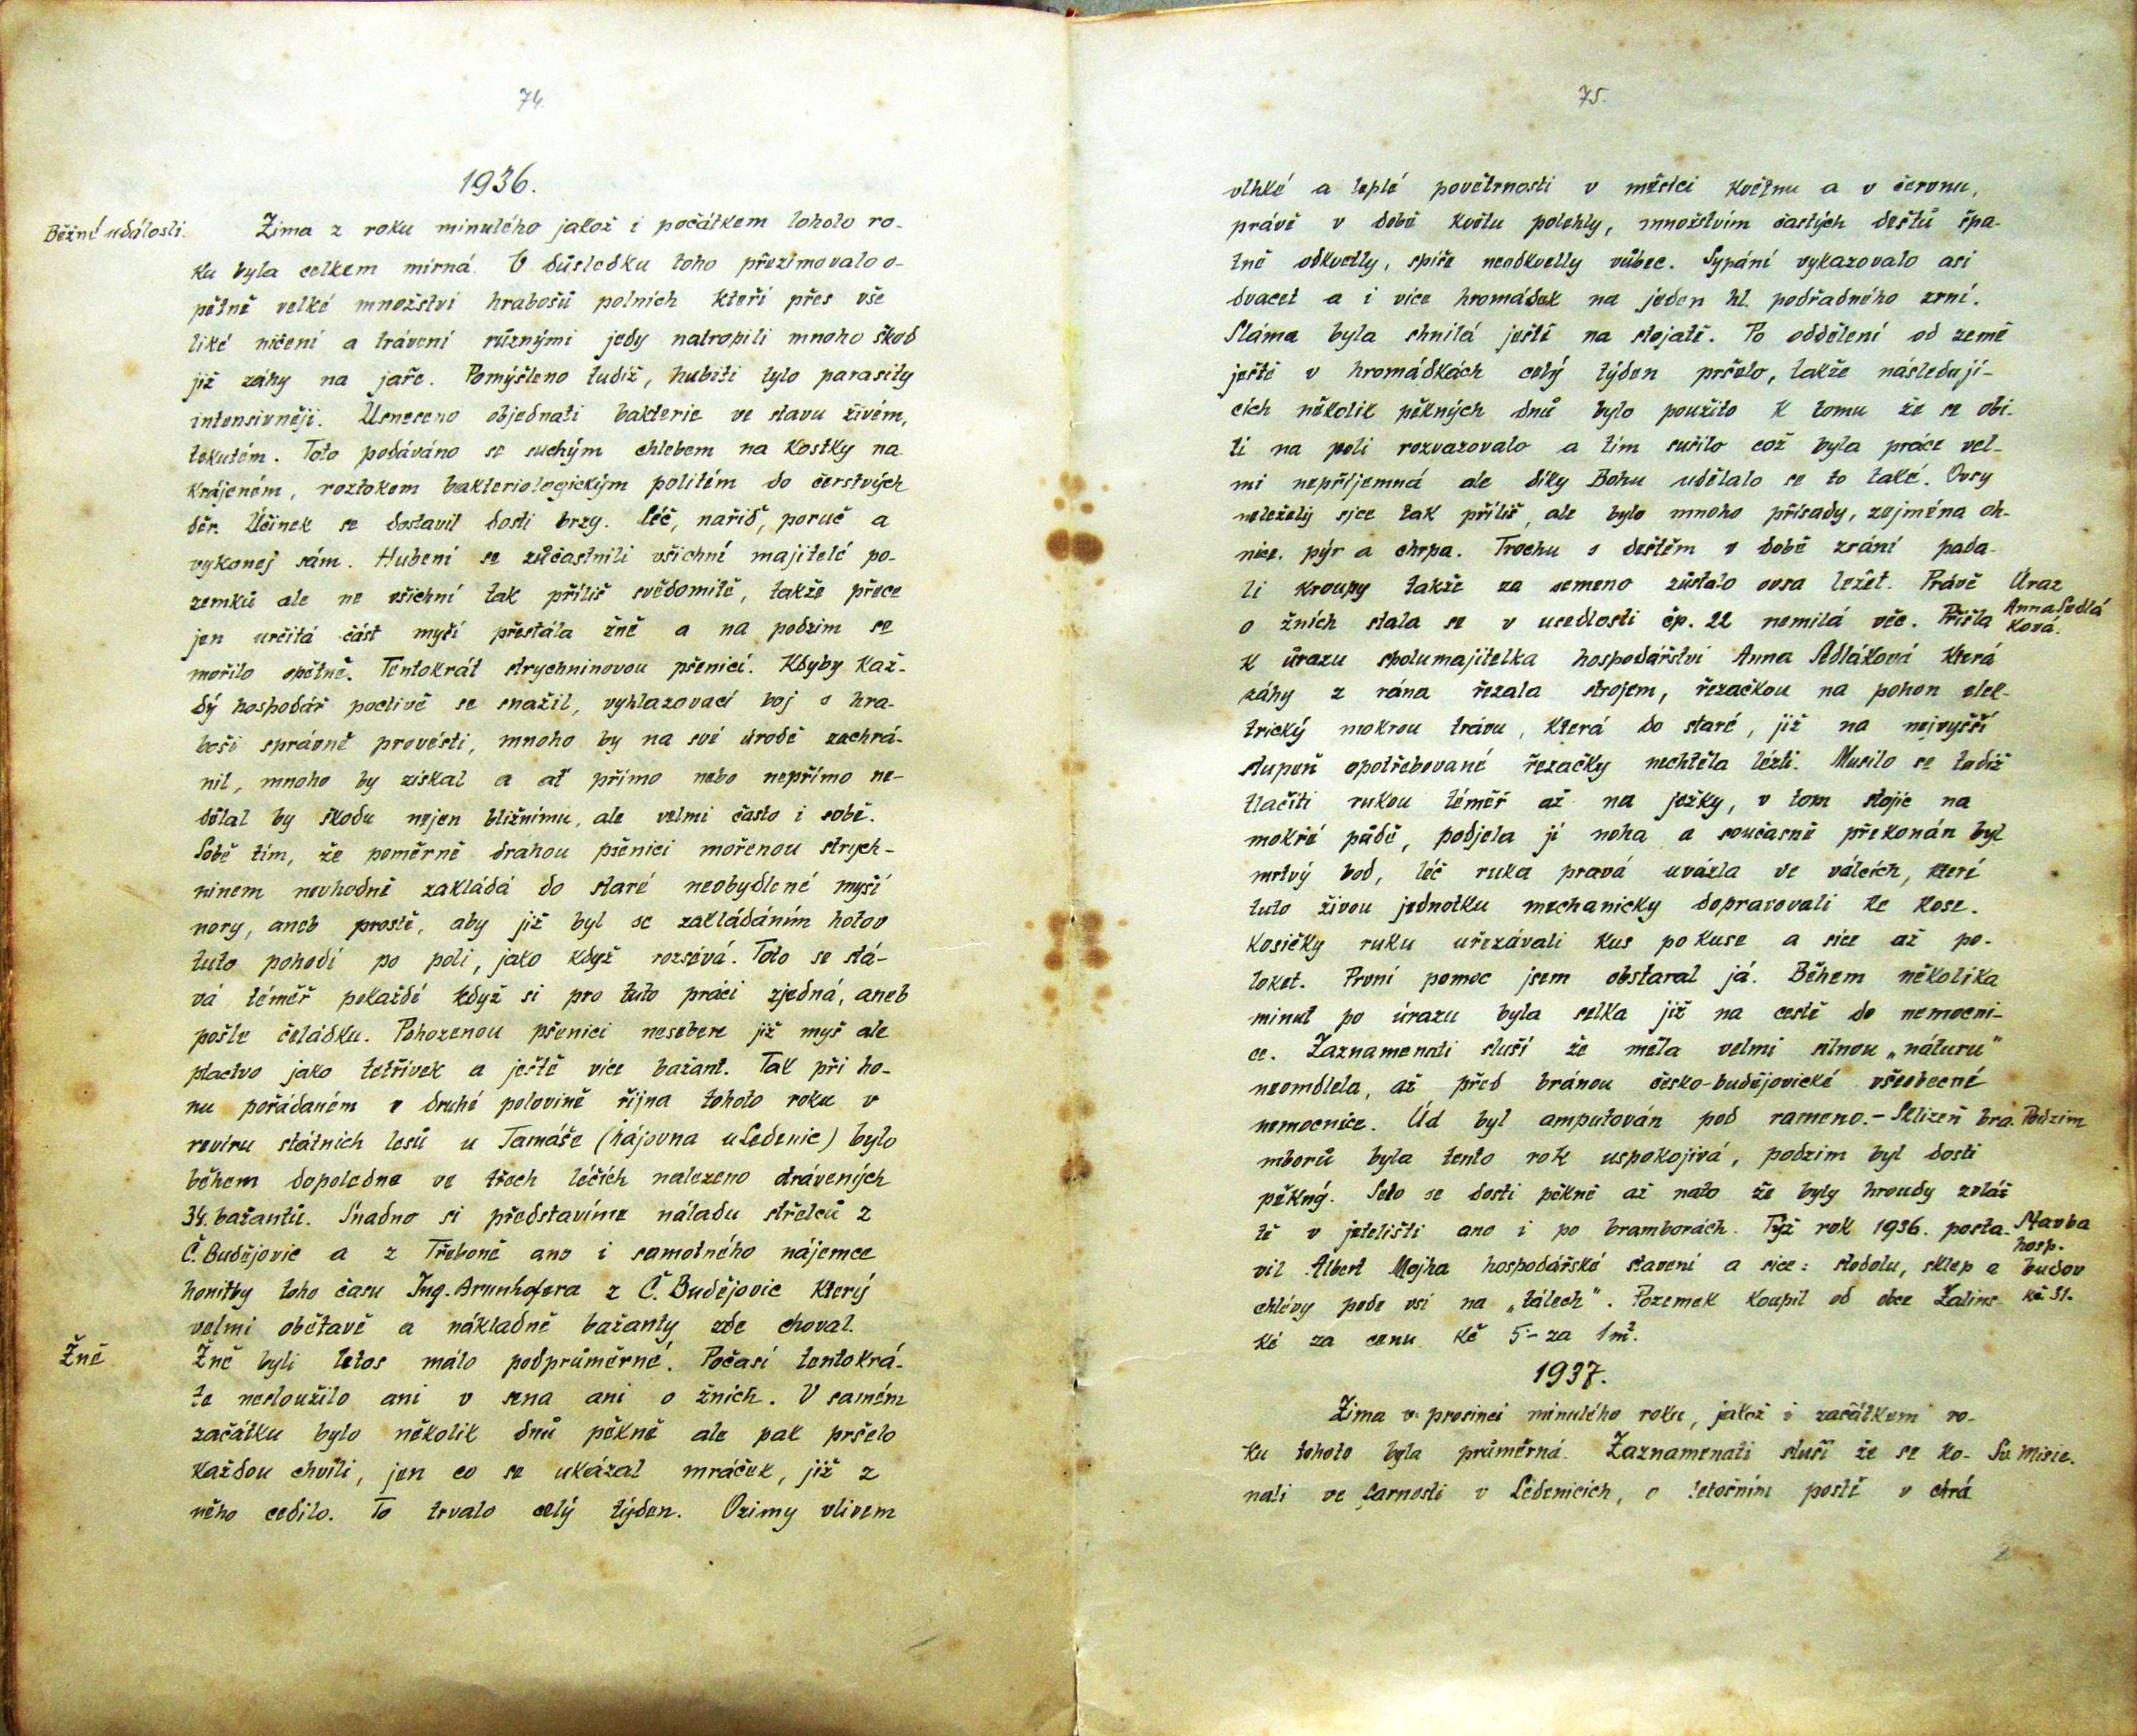 74.
1936.
Běžné události.
Zima z roku minulého jakož i počátkem tohoto ro-
ku byla celkem mírná. V důsledku toho přezimovalo o-
pětně velké množství hrabošů polních kteří přes vše
liké ničení a trávení různými jedy natropili mnoho škod
již záhy na jaře. Pomýšleno tudíž, hubiti tyto parasity
intensivněji. Usneseno objednati bakterie ve stavu živém,
tekutém. Toto podáváno se suchým chlebem na kostky na
krájeném, roztokem bakteriologickým politém do čerstvých
děr. Účinek se dostavil dosti brzy. Léč, nařiď, poruč a
vykonej sám. Hubení se zůčastnili všichní majitelé po-
zemků ale ne všichní tak příliš svědomitě, takže přece
jen určitá část myší přestála žně a na podzim se
mořilo opětně. Tentokrát strychninovou pšenicí. Kdyby kaž-
dý hospodář poctivě se snažil, vyhlazovací boj s hra-
boši správně provésti, mnoho by na své úrodě zachrá-
nil, mnoho by získal a ať přímo nebo nepřímo ne-
dělal by škodu nejen bližnímu, ale velmi často i sobě.
Sobě tím, že poměrně drahou pšenici mořenou strych-
ninem nevhodně zakládá do staré neobydlené myší
nory, aneb prostě, aby již byl se zakládáním hotov
tuto pohodí po poli, jako když rozsévá. Toto se stá-
vá téměř pokaždé když si pro tuto práci zjedná, aneb
pošle čeládku. Pohozenou pšenici nesebere již myš ale
ptactvo jako tetřívek a ještě více bažant. Tak při ho-
nu pořádaném v druhé polovině října tohoto roku v
revíru státních lesů u Tamáše (hájovna u Ledenic) bylo
během dopoledne ve třech léčích nalezeno otrávených
34. bažantů. Snadno si představíme náladu střelců z
Č. Budějovic a z Třeboně ano i samotného nájemce
honitby toho času Ing. Arnnhofera z Č. Budějovic který
velmi obětavě a nákladně bažanty zde choval.
Žně
Žně byli letos málo podprůměrné. Počasí tentokrá-
te nesloužilo ani v sena ani o žních. V samém
začátku bylo několik dnů pěkně ale pak pršelo
každou chvíli, jen co se ukázal mráček, již z
něho cedilo. To trvalo celý týden. Ozimy vlivem
75.
vlhké a teplé povětrnosti v měsíci květnu a v červnu,
právě v době květu polehly, množstvím častých deštů špa-
tně odkvetly, spíše neodkvetly vůbec. Sypání vykazovalo asi
dvacet a i více hromádek na jeden hl. podřadného zrní.
Sláma byla shnilá ještě na stojatě. Po oddělení od země
ještě v hromádkách celý týden pršelo, takže následují-
cích několik pěkných dnů bylo použito k tomu že se obi-
lí na poli rozvazovalo a tím sušilo což byla práce vel-
mi nepříjemná ale díky Bohu udělalo se to také. Ovsy
neležely sice tak příliš, ale bylo mnoho přísady, zejména oh-
nice. pýr a chrpa. Trochu s deštěm v době zrání pada-
li kroupy takže za semeno zůstalo ovsa ležet. Právě
Úraz
Anna Sedlá
ková.
o žních stala se v usedlosti čp. 22 nemilá věc. Přišla
k úrazu spolumajitelka hospodářství Anna Sedláková která
záhy z rána řezala strojem, řezačkou na pohon elek-
trický mokrou trávu, která do staré, již na nejvyšší
stupeň opotřebované řezačky nechtěla lézti. Musilo se tudíž
tlačiti rukou téměř až na ježky, v tom stojíc na
mokré půdě, podjela jí noha a současně překonán byl
mrtvý bod, léč ruka pravá uvázla ve válcích, které
tuto živou jednotku mechanicky dopravovali ke kose.
Kosičky ruku uřezávali kus po kuse a sice až po-
loket. První pomoc jsem obstaral já. Během několika
minut po úrazu byla selka již na cestě do nemocni-
ce. Zaznamenati sluší že měla velmi silnou „náturu"
neomdlela, až před bránou česko-budějovické všeobecné
nemocnice. Úd byl amputován pod rameno. - Sklizeň bra.
Podzim
mborů byla tento rok uspokojivá, podzim byl dosti
pěkný. Selo se dosti pěkně až nato že byly hroudy zvláš
tě v jetelišti ano i po bramborách. Týž rok 1936. posta-
Stavba
hosp.
budov
Kč 31.
vil Albert Mojha hospodářské stavení a sice: stodolu, sklep a
chlévy pode vsí na „tálech". Pozemek koupil od obce Zalins-
ké za cenu Kč 5·- za 1m².
1937.
Zima v prosinci minulého roku, jakož i začátkem ro-
ku tohoto byla průměrná. Zaznamenati sluší že se ko-
Sv. Misie.
nali ve farnosti v Ledenicích, o letošním postě v chrá